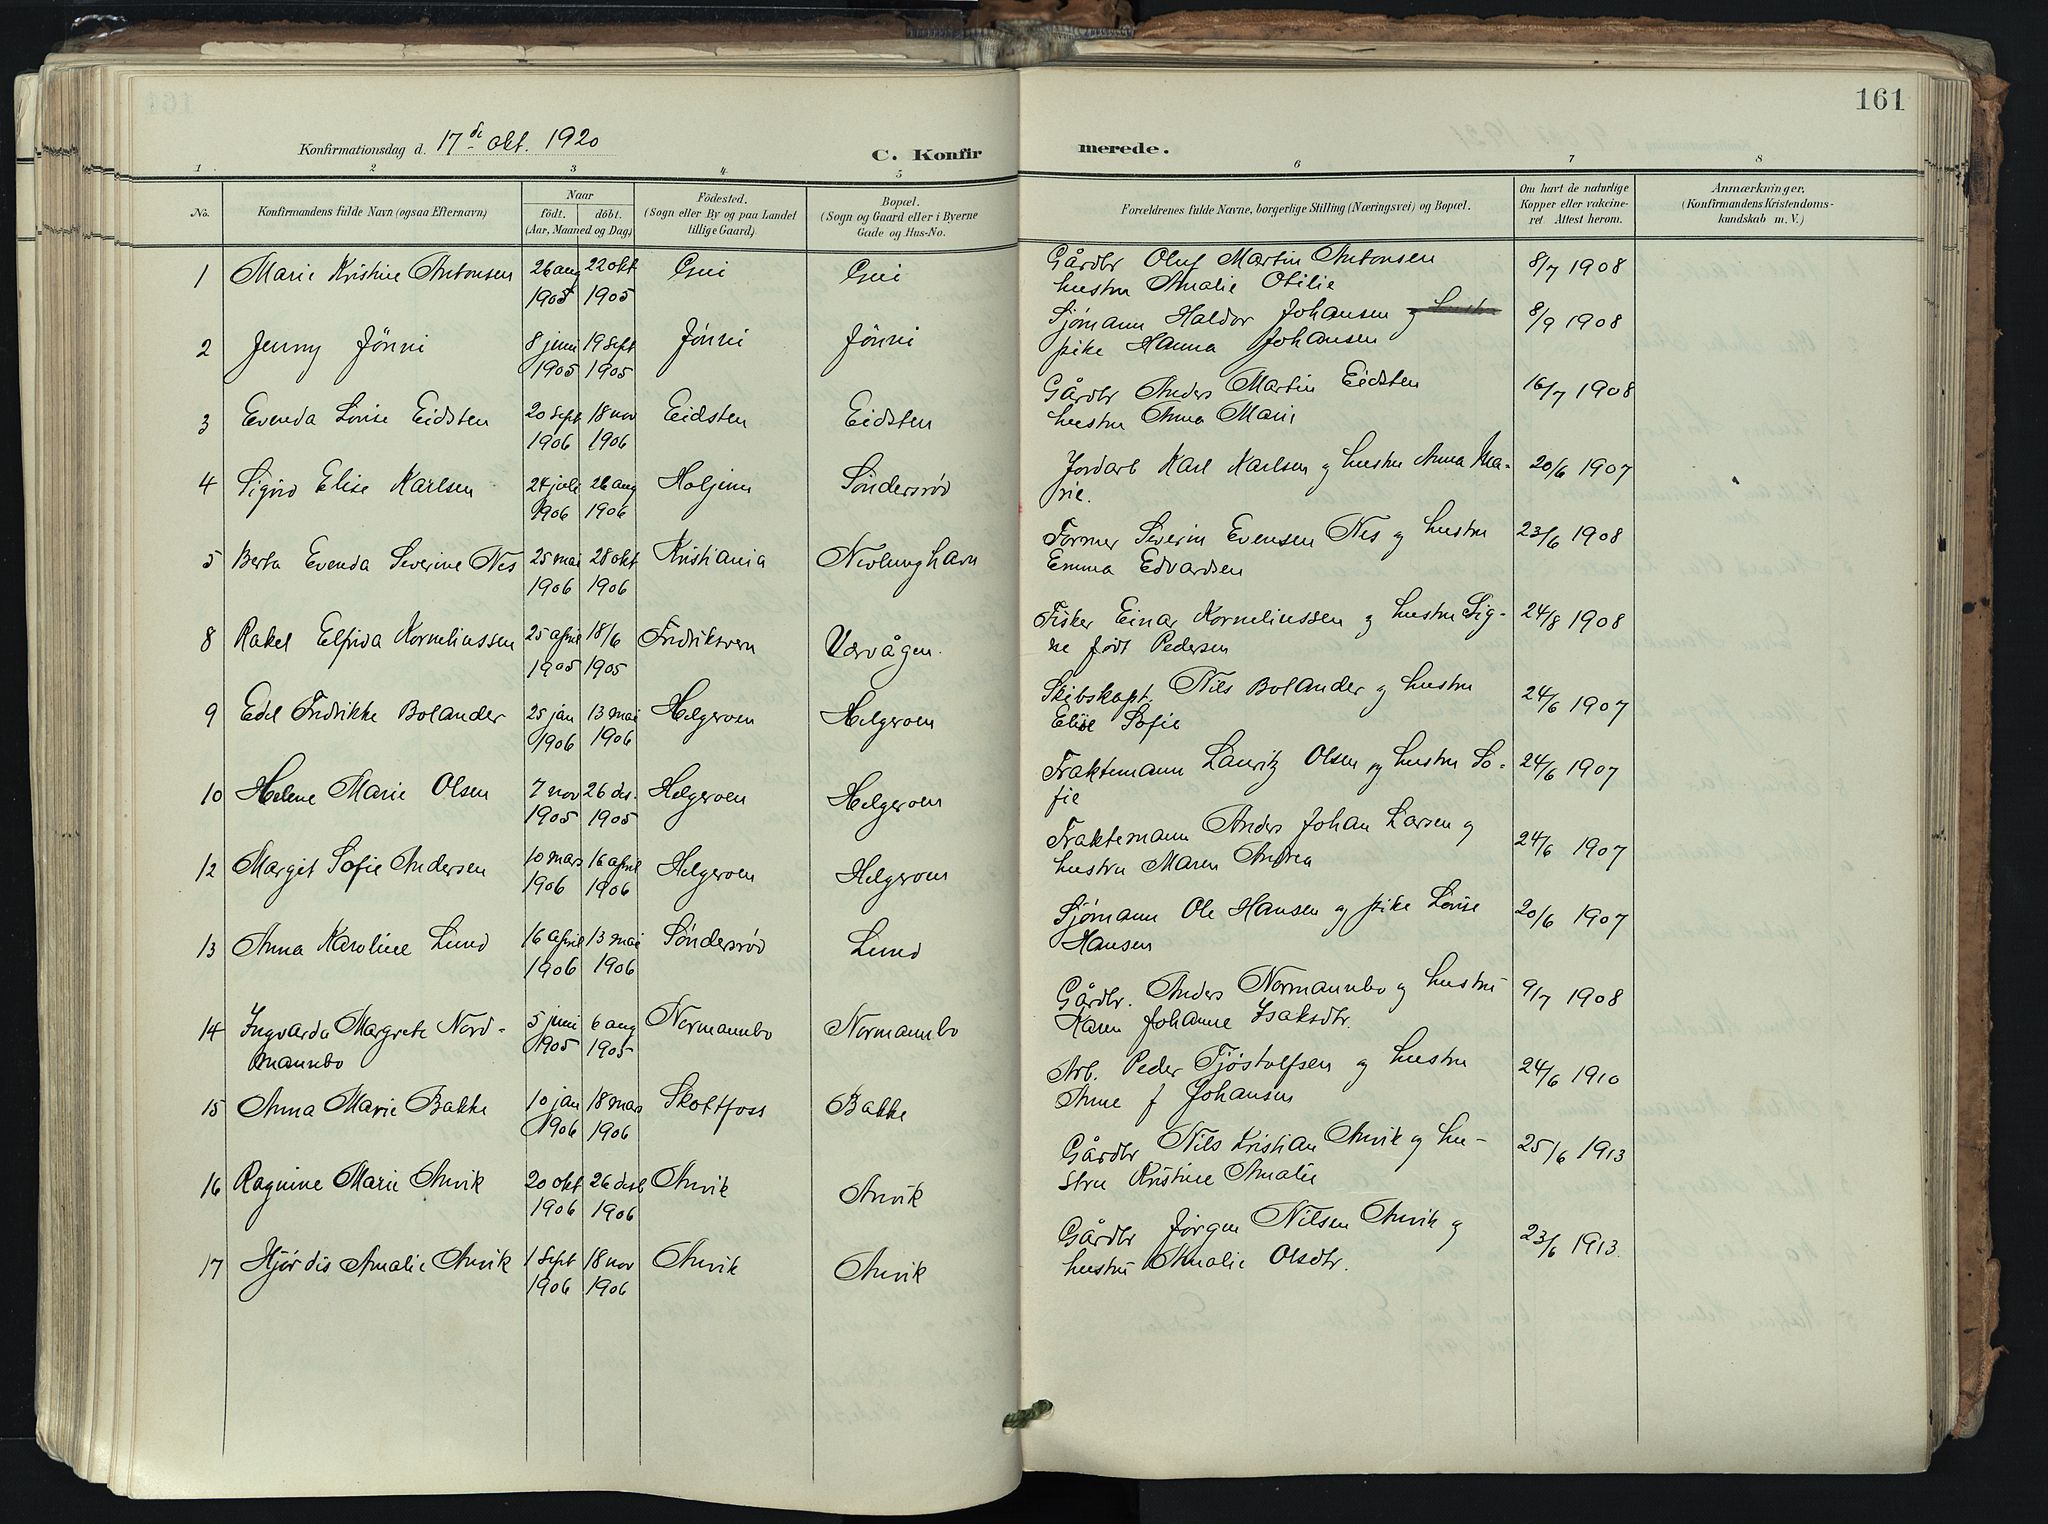 161
Konfirmationsdag d. 17de okt. 1920
C. Konfirmerede.
1 2 3 4 5 6 7 8
No.
Konfirmandens fulde Navn (ogsaa Efternavn)
Naar
födt. döbt.
(Aar, Maaned og Dag)
Födested.
(Sogn eller By og paa Landet
tillige Gaard)
Bopæl.
(Sogn og Gaard eller i Byerne
Gade og Hus-No.
Forældrenes fulde Navne, borgerlige Stilling (Næringsvei) og Bopæl.
Om havt de naturlige
Kopper eller vakcine-
ret Attest herom.
Anmærkninger.
(Konfirmandens Kristendoms-
kundskab m. V.)
1 Marie Kristine Antonsen 26 aug 22 okt Gui Gui Gårdbr Oluf Martin Antonsen 8/7 1908
1905 1905 hustru Amalie Otilie
2 Jenny Jönni 8 juni 19 sept Jönni Jönni Sjömann Haldor Johansen og hustru 8/9 1908
1905 1905 pike Hanna Johansen
3 Evenda Lovise Eidsten 20 sept 18 nov Eidsten Eidsten Gårdbr Anders Martin Eidsten 16/7 1908
1906 1906 hustru Anna Marie
4 Signe Elise Karlsen 24 juli 26 aug Holjem Söndersröd Jordarb Karl Karlsen og hustru Anna Ma- 20/6 1907
1906 1906 rie.
5 Berta Evenda Severine Nes 25 mai 28 okt Kristiania Nevlunghavn Former Severin Evensen Nes og hustru 23/6 1908
1906 1906 Emma Edvardsen
8 Rakel Elfrida Korneliussen 25 april 18/6 Fredriksvern Værvågen. Fisker Einar Korneliussen og hustru Sig- 24/8 1908
1905 1905 ne född Pedersen
9 Edel Fredrikke Bolander 25 jan 13 mai Helgeroen Helgeroen Skibskapt. Nils Bolander og hustru 24/6 1907
1906 1906 Elise Sofie
10 Helene Marie Olsen 7 nov 26 des. Helgeroen Helgeroen Fraktemann Lauritz Olsen og hustru So- 24/6 1907
1905 1905 fie
12 Margit Sofie Andersen 10 mars 16 april Helgeroen Helgeroen Fraktemann Anders Johan Larsen og 24/6 1907
1906 1906 hustru Maren Andrea
13 Anna Karoline Lund 16 april 13 mai Söndersröd Lund Sjömann Ole Hansen og pike Lovise 20/6 1907
1906 1906 Hansen
14 Ingvarda Margrete Nord- 5 juni 6 aug Normannbo Normannbo Gårdbr. Anders Normannbo og hustru 9/7 1908
mannbo 1905 1905 Karen Johanne Isaksdtr.
15 Anna Marie Bakke 10 jan 18 mars Skotfoss Bakke Arb. Peder Tjöstolfsen og hustru 24/6 1910
1906 1906 Anne f Johansen
16 Ragnine Marie Anvik 20 okt 26 des Anvik Anvik Gårdbr Nils Kristian Anvik og hu- 25/6 1913
1906 1906 stru Kristine Amalie
17 Hjördis Amalie Anvik 1 sept 18 nov Anvik Anvik Gårdbr Jörgen Nilsen Anvik og 23/6 1913
1906 1906 hustru Amalie Olsdtr.